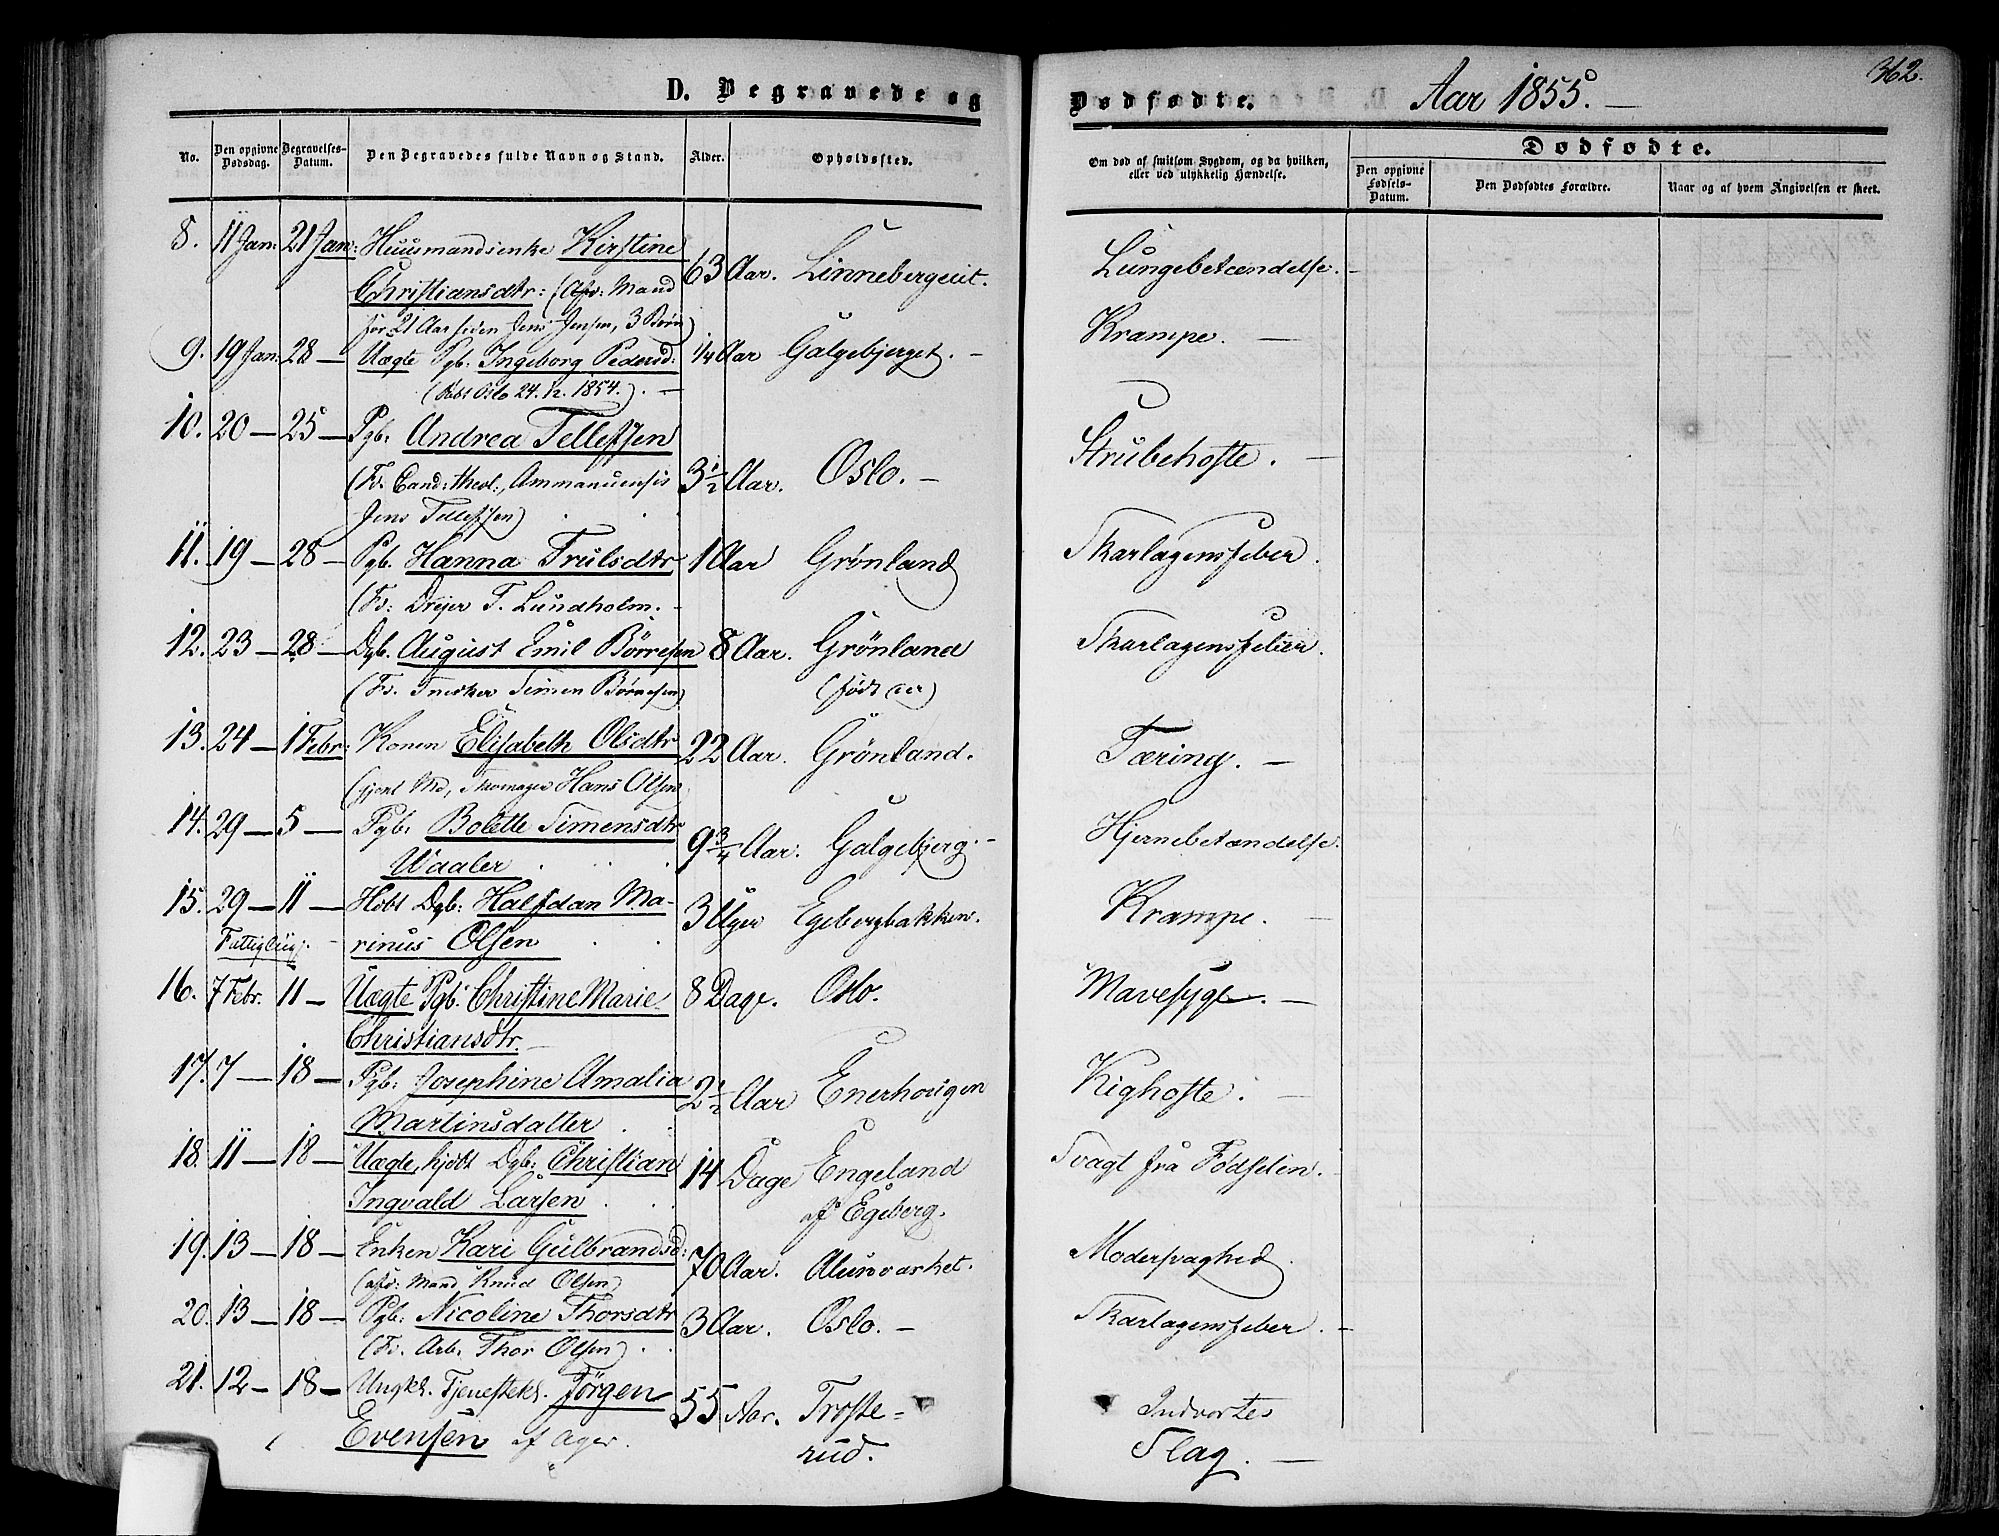 D. Begravede og
Dødfødte. Aar 1855. 362.
No. Den opgivne Dødsdag. Begravelses-Datum. Den Begravedes fulde Navn og Stand. Alder. Opholdssted. Om død af smitsom Sygdom, og da hvilken, eller ved ulykkelig Hændelse. Dødfødte. Den opgivne Fødsels-Datum. Den Dødfødtes Forældre. Naar og af hvem Angivelsen er skeet.
8. 11 Jan: 21 Jan: Huusmandsenke Kirstine 63 Aar. Linnebergeiet. Lungebetændelse.
Christiansdtr: (Afd: Mand
for 21 Aar siden Jens Jensen, 3 Børn)
9. 19 Jan: 28 — Uægte Pgb: Ingeborg Pedersd: 1/4 Aar Galgebjerget. Krampe.
(Døbt Oslo 24. 12. 1854.)
10. 20 — 25 — Pgb: Andrea Tellefsen 3 1/2 Aar. Oslo. Strubehoste.
(Fr. Cand: theol:, Ammanuensis
Jens Tellefsen)
11. 19 — 28 — Pgb. Hanna Trulsdtr 1 Aar Grønland Skarlagensfeber.
(Fr: Dreier T. Lundholm.
12. 23 — 28 — Dgb. August Emil Børresen 8 Aar. Grønland Skarlagensfeber.
(Fr. Snedker Simen Børresen) (født der)
13. 24 — 1 Febr: Konen Elisabeth Olsdtr 22 Aar. Grønland. Tæring.
(gjenl Md, Skomager Hans Olsen
14. 29 — 5 — Pgb: Bolette Simensdtr 9 3/4 Aar. Galgebjerg. Hjernebetændelse.
Waaler
15. 29 — 11 — Hdbt Dgb: Halfdan Ma- 3 Uger Egebergbakken. Krampe.
rinus Olsen
16. 7 Febr. 11 — Uægte Pgb: Christine Marie 8 Dage. Oslo. Mavesyge.
Christiansdtr.
17. 7 — 18 — Pgb: Josephine Amalia 2 1/2 Aar Enerhougen Kighoste.
Martinsdatter
18. 11 — 18 — Uægte, hjdbt Dgb: Christian 14 Dage Engeland Svagt frå Fødselen.
Ingvald Larsen af Egeberg.
19. 13 — 18 — Enken Kari Gulbrandsd: 70 Aar. Alunværket. Modersvaghed.
(afd: Mand Knud Olsen)
20. 13 — 18 — Pgb: Nicoline Thorsdtr 3 Aar. Oslo. Skarlagensfeber.
(Fr. Arb: Thor Olsen)
21. 12 — 18 — Ungkl. Tjenestekl. Jörgen 55 Aar. Troste- Indvortes
Evensen af Ager. rud. Slag.